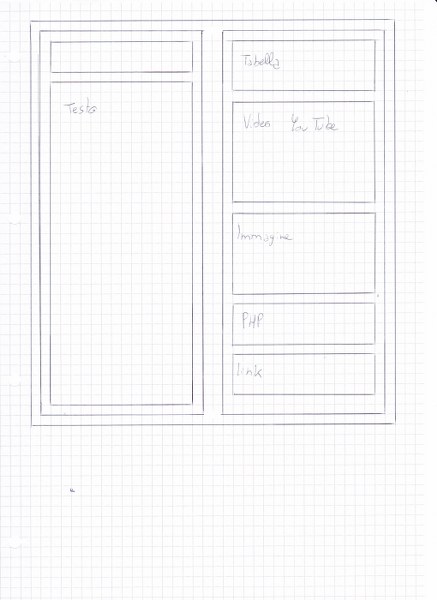 Testo
Tabella
Video You Tube
Immagine
PHP
link